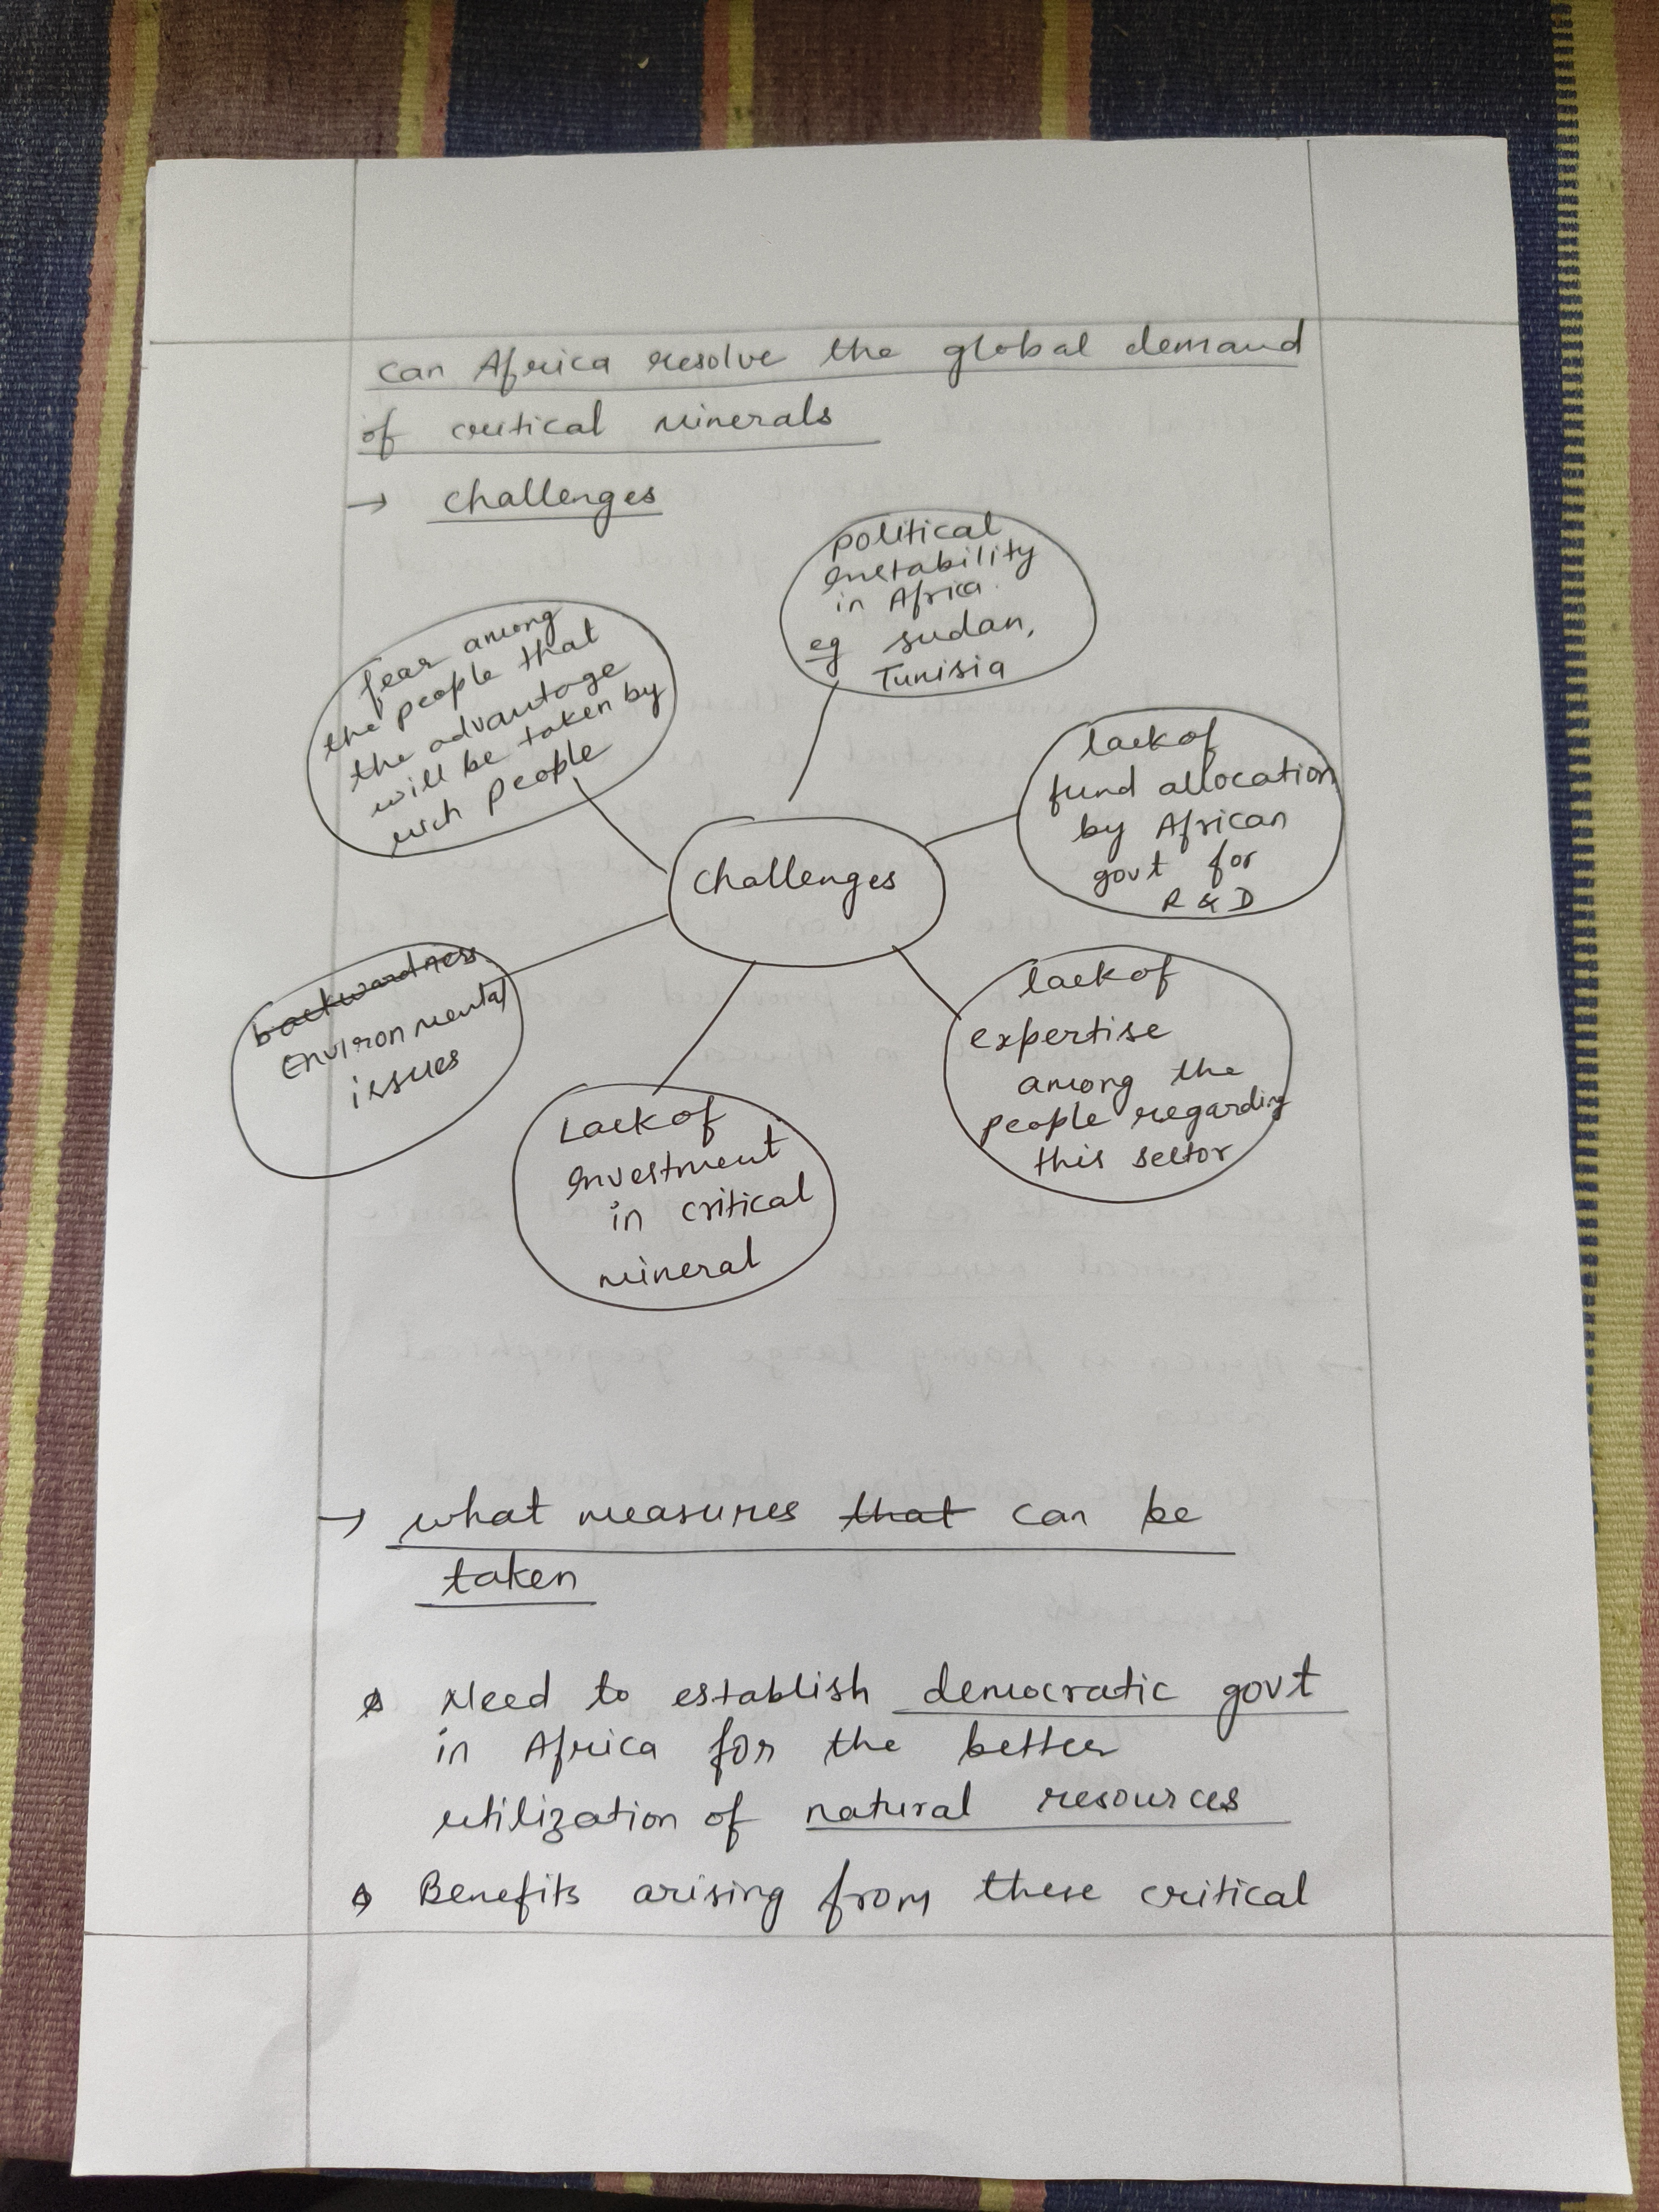 can Africa resolve the global demand
of critical minerals
→ challenges
political
instability
in Africa.
eg sudan,
Tunisia
fear among
the people that
the advantage
will be taken by
rich people
lack of
fund allocation
by African
govt for
R & D
challenges
backwardness
Environmental
issues
lack of
expertise
among the
people regarding
this sector
Lack of
investment
in critical
mineral
→ what measures that can be
taken
Need to establish democratic govt
in Africa for the better
utilization of natural resources
Benefits arising from these critical